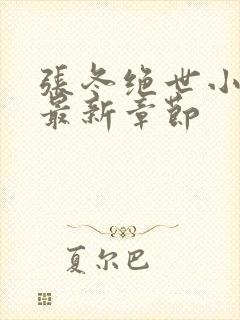 張冬绝世小
最新章節
夏尔巴